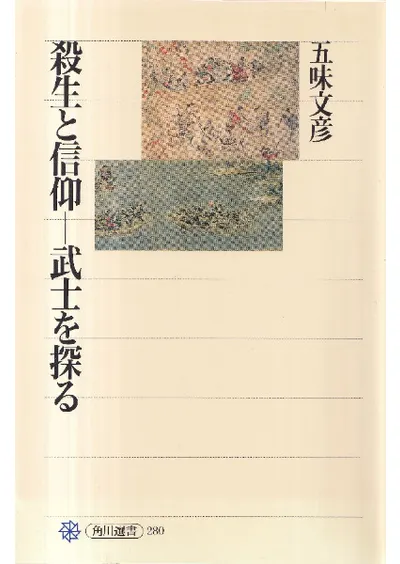 五味文彦
殺生と信仰―武士を探る
角川選書 280